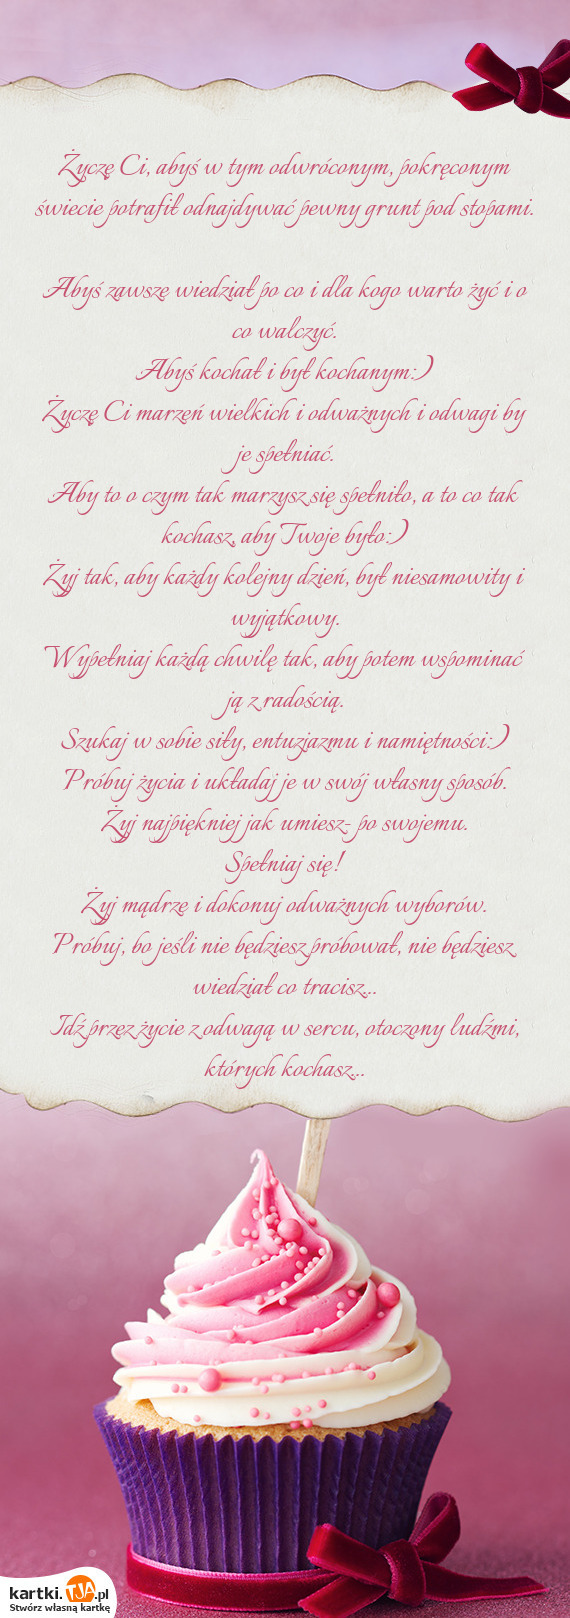 Życzę Ci, abyś w tym odwróconym, pokręconym
świecie potrafił odnajdywać pewny grunt pod stopami.
Abyś zawsze wiedział po co i dla kogo warto żyć i o
co walczyć.
Abyś kochał i był kochanym:)
Życzę Ci marzeń wielkich i odważnych i odwagi by
je spełniać.
Aby to o czym tak marzysz się spełniło, a to co tak
kochasz, aby Twoje było:)
Żyj tak, aby każdy kolejny dzień, był niesamowity i
wyjątkowy.
Wypełniaj każdą chwilę tak, aby potem wspominać
ją z radością.
Szukaj w sobie siły, entuzjazmu i namiętności:)
Próbuj życia i układaj je w swój własny sposób.
Żyj najpiękniej jak umiesz- po swojemu.
Spełniaj się!
Żyj mądrze i dokonuj odważnych wyborów.
Próbuj, bo jeśli nie będziesz próbował, nie będziesz
wiedział co tracisz...
Idź przez życie z odwagą w sercu, otoczony ludźmi,
których kochasz...
kartki.TJA.pl
Stwórz własną kartkę